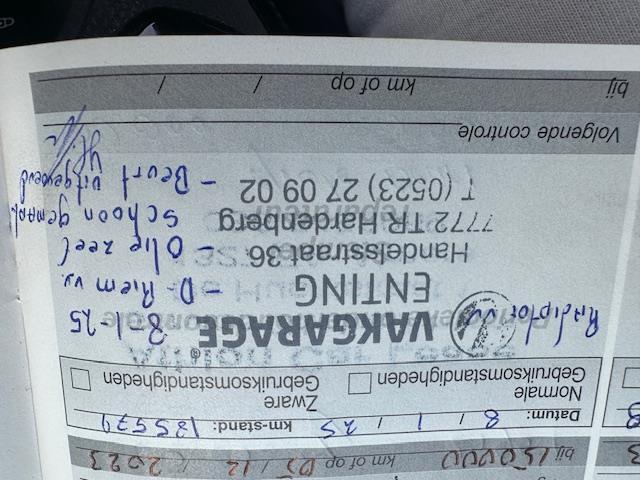 bij 150000 km of op 05 / 12 2023
Datum: 8 / 1 / 25 km-stand: 135579
Normale Gebruiksomstandigheden
Zware Gebruiksomstandigheden
VAKGARAGE
ENTING
Handelsstraat 36
7772 TR Hardenberg
T (0523) 27 09 02
8-1-25
- D-Riem vv.
- Olie zeef
schoon gemaakt
- Beurt uitgevoerd
Volgende controle
bij km of op / /